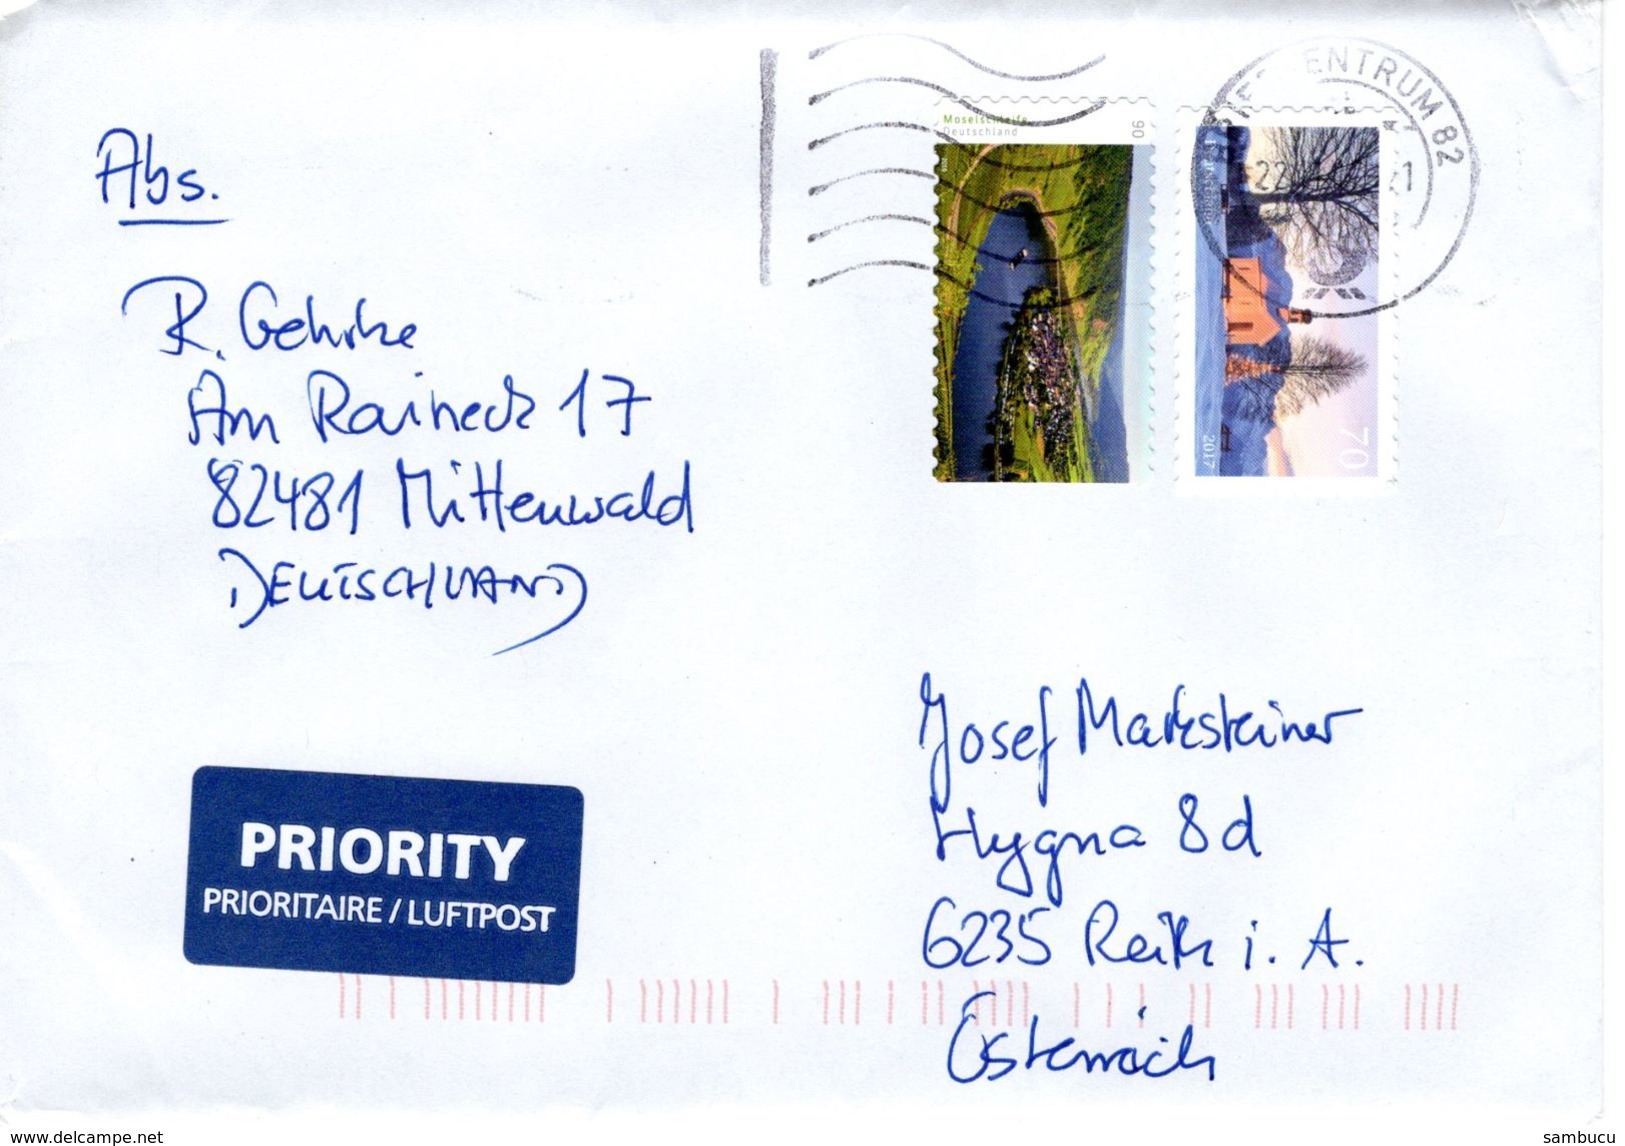 Abs.
R. Gehrke
Am Raineck 17
82481 Mittenwald
DEUTSCHLAND
Moselschleife
Deutschland
90
70
2017
BRIEFZENTRUM 82
22
21
PRIORITY
PRIORITAIRE / LUFTPOST
Josef Marksteiner
Hygna 8d
6235 Reith i. A.
Österreich
www.delcampe.net
sambucu